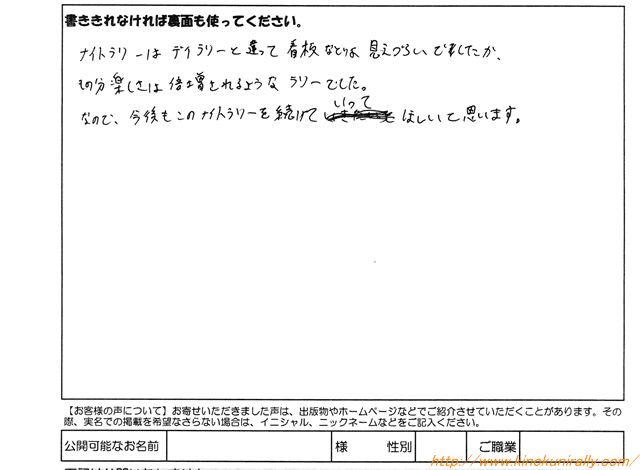 書ききれなければ裏面も使ってください。
ナイトラリーはデイラリーと違って看板などは見えづらいでしたが、
その分楽しさは倍増されるようなラリーでした。
いって
なので、今後もこのナイトラリーを続けて ほしいと思います。
【お客様の声について】お寄せいただきました声は、出版物やホームページなどでご紹介させていただくことがあります。その
際、実名での掲載を希望なさらない場合は、イニシャル、ニックネームなどをご記入ください。
公開可能なお名前 様 性別 ご職業
http://www.kinokunirally.com/